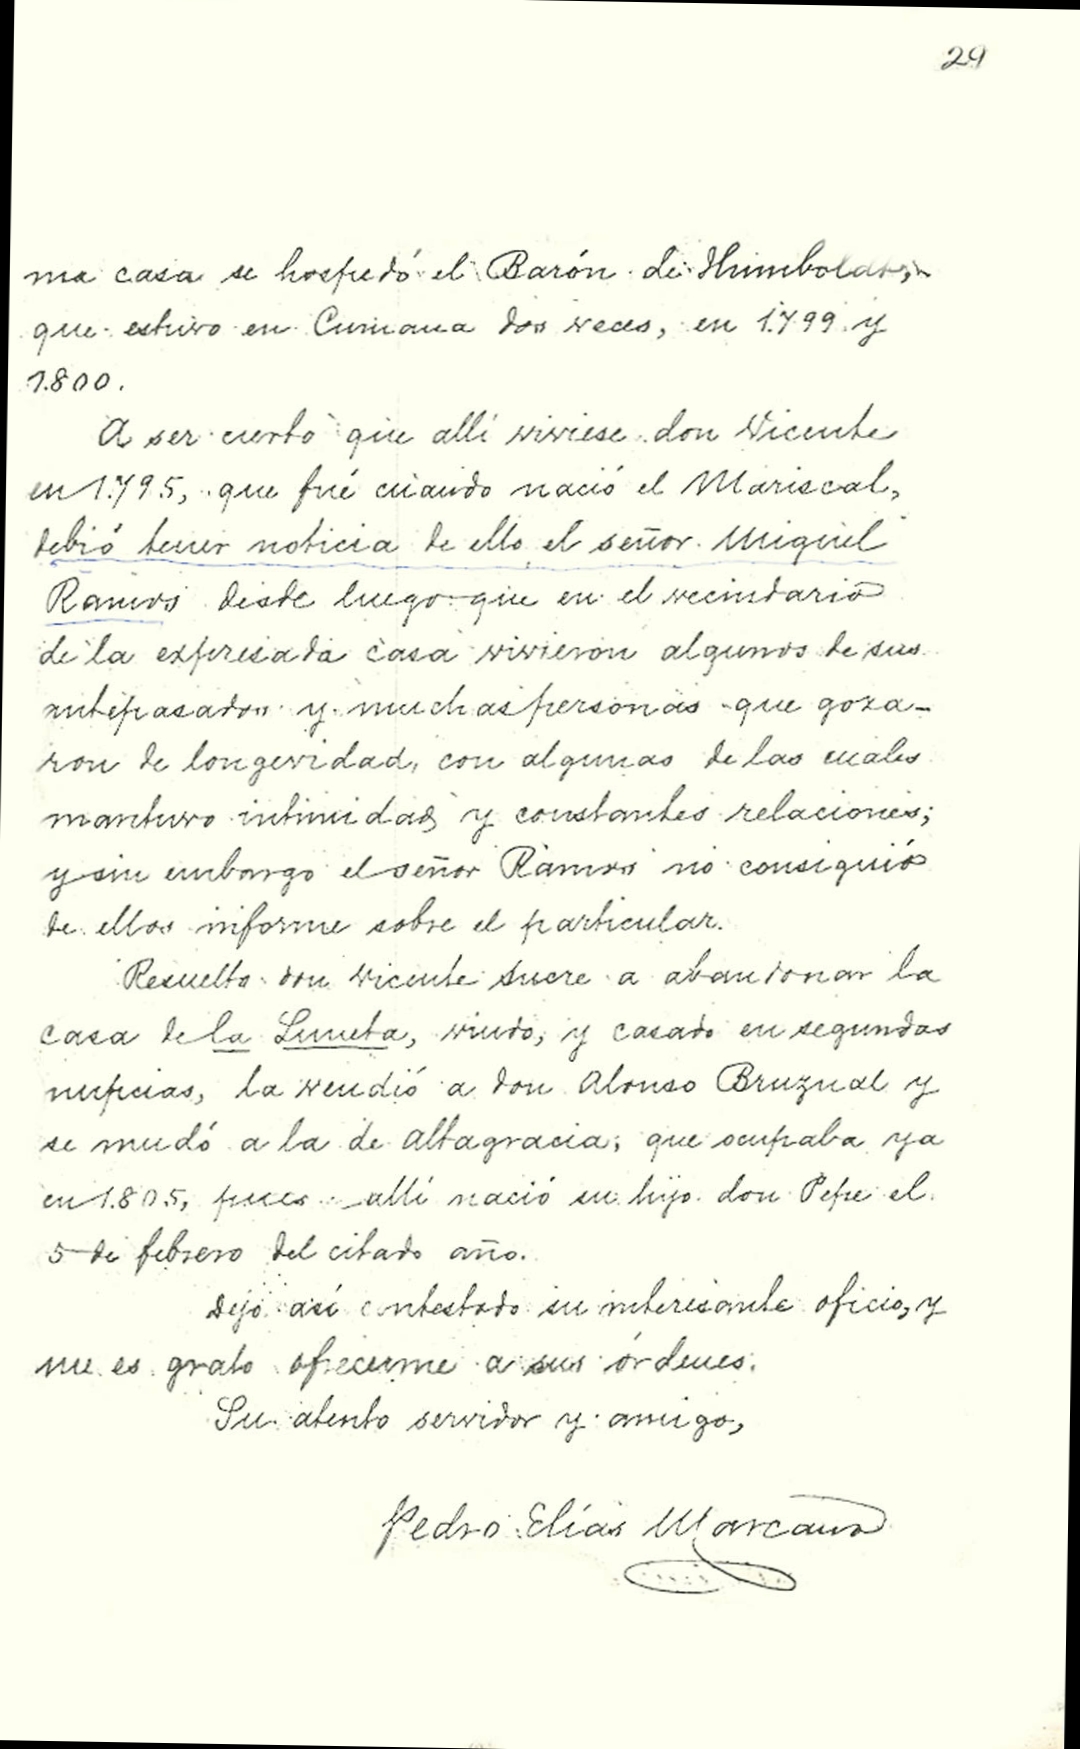 29
ma casa se hospedó el Barón de Humboldt,
que estuvo en Cumaná dos veces, en 1.799 y
1.800.
A ser cierto que allí viviese don Vicente
en 1.795, que fué cuando nació el Mariscal,
debió tener noticia de ello el señor Miguel
Ramos desde luego que en el vecindario
de la expresada casa vivieron algunos de sus
antepasados y muchas personas que goza-
ron de longevidad, con algunas de las cuales
mantuvo intimidad y constantes relaciones;
y sin embargo el señor Ramos no consiguió
de ellos informe sobre el particular.
Resuelto don Vicente Sucre a abandonar la
casa de la Luneta, viudo, y casado en segundas
nupcias, la vendió a don Alonso Bruzual y
se mudó a la de Altagracia, que ocupaba ya
en 1.805, pues allí nació su hijo don Pepe el
5 de febrero del citado año.
Dejo así contestado su interesante oficio, y
me es grato ofrecerme a sus órdenes.
Su atento servidor y amigo,
Pedro Elías Marcano